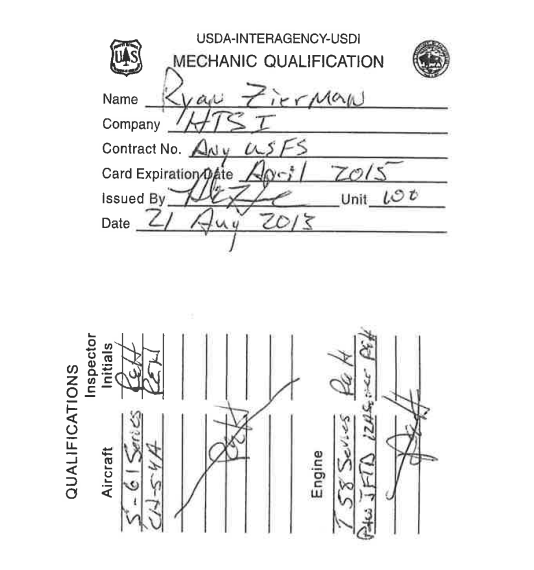 USDA-INTERAGENCY-USDI
UAS
MECHANIC QUALIFICATION
Name Ryan Zierman
Company HTSI
Contract No. Any USFS
Card Expiration Date April 2015
Issued By
Unit 100
Date 21 Aug 2013
QUALIFICATIONS
Aircraft
Inspector
Initials
S-61 Series REH
CH-54A REH
REH
Engine
T58 Series REH
P&W JFTD 12A Series REH
REH